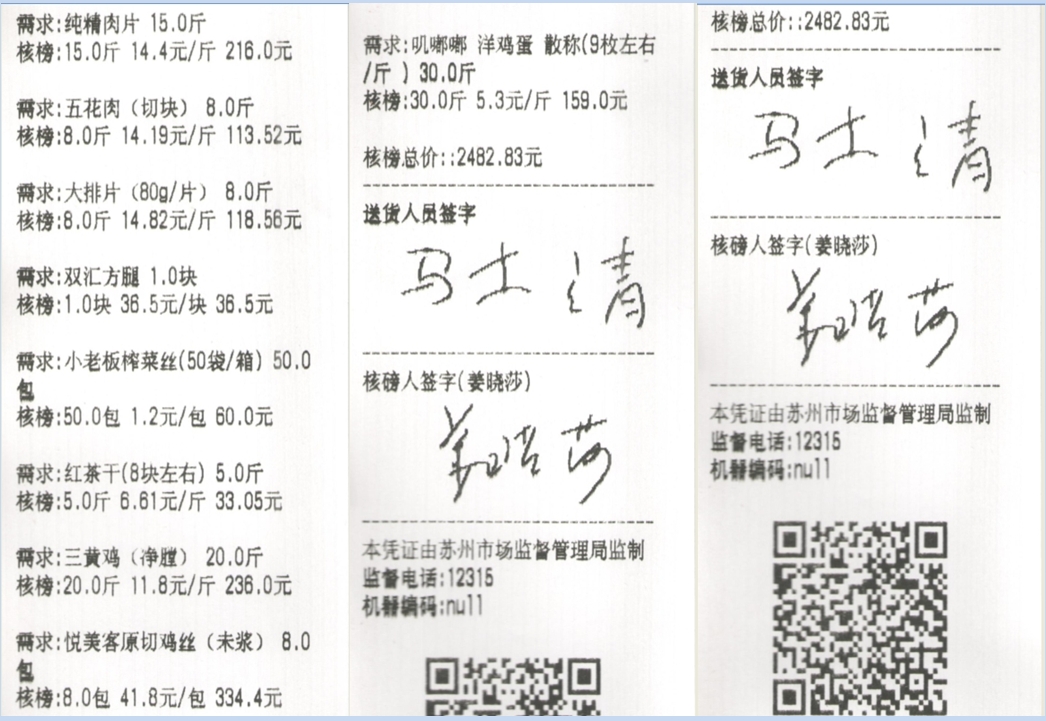 需求:纯精肉片 15.0斤
核榜:15.0斤 14.4元/斤 216.0元
需求:五花肉（切块） 8.0斤
核榜:8.0斤 14.19元/斤 113.52元
需求:大排片（80g/片） 8.0斤
核榜:8.0斤 14.82元/斤 118.56元
需求:双汇方腿 1.0块
核榜:1.0块 36.5元/块 36.5元
需求:小老板榨菜丝(50袋/箱) 50.0
包
核榜:50.0包 1.2元/包 60.0元
需求:红茶干(8块左右) 5.0斤
核榜:5.0斤 6.61元/斤 33.05元
需求:三黄鸡（净膛） 20.0斤
核榜:20.0斤 11.8元/斤 236.0元
需求:悦美客原切鸡丝（未浆） 8.0
包
核榜:8.0包 41.8元/包 334.4元
需求:叽嘟嘟 洋鸡蛋 散称(9枚左右
/斤 ) 30.0斤
核榜:30.0斤 5.3元/斤 159.0元
核榜总价::2482.83元
送货人员签字
马士清
核磅人签字(姜晓莎)
姜晓莎
本凭证由苏州市场监督管理局监制
监督电话:12315
机器编码:null
核榜总价::2482.83元
送货人员签字
马士清
核磅人签字(姜晓莎)
姜晓莎
本凭证由苏州市场监督管理局监制
监督电话:12315
机器编码:null